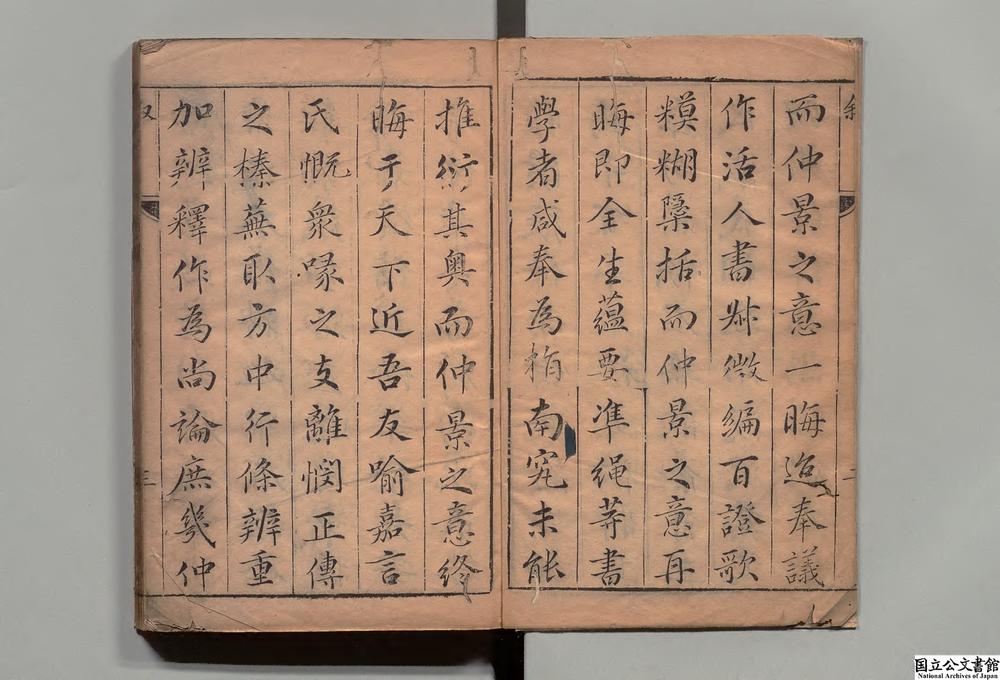 而仲景之意一晦迨奉議
作活人書叔微編百證歌
糢糊檃括而仲景之意再
晦即全生蘊要凖繩等書
學者咸奉為指南究未能
推衍其奧而仲景之意終
晦于天下近吾友喻嘉言
氏慨衆喙之支離憫正傳
之榛蕪取方中行條辨重
加辨釋作為尚論庶㡬仲
叙
二
三
国立公文書館
National Archives of Japan